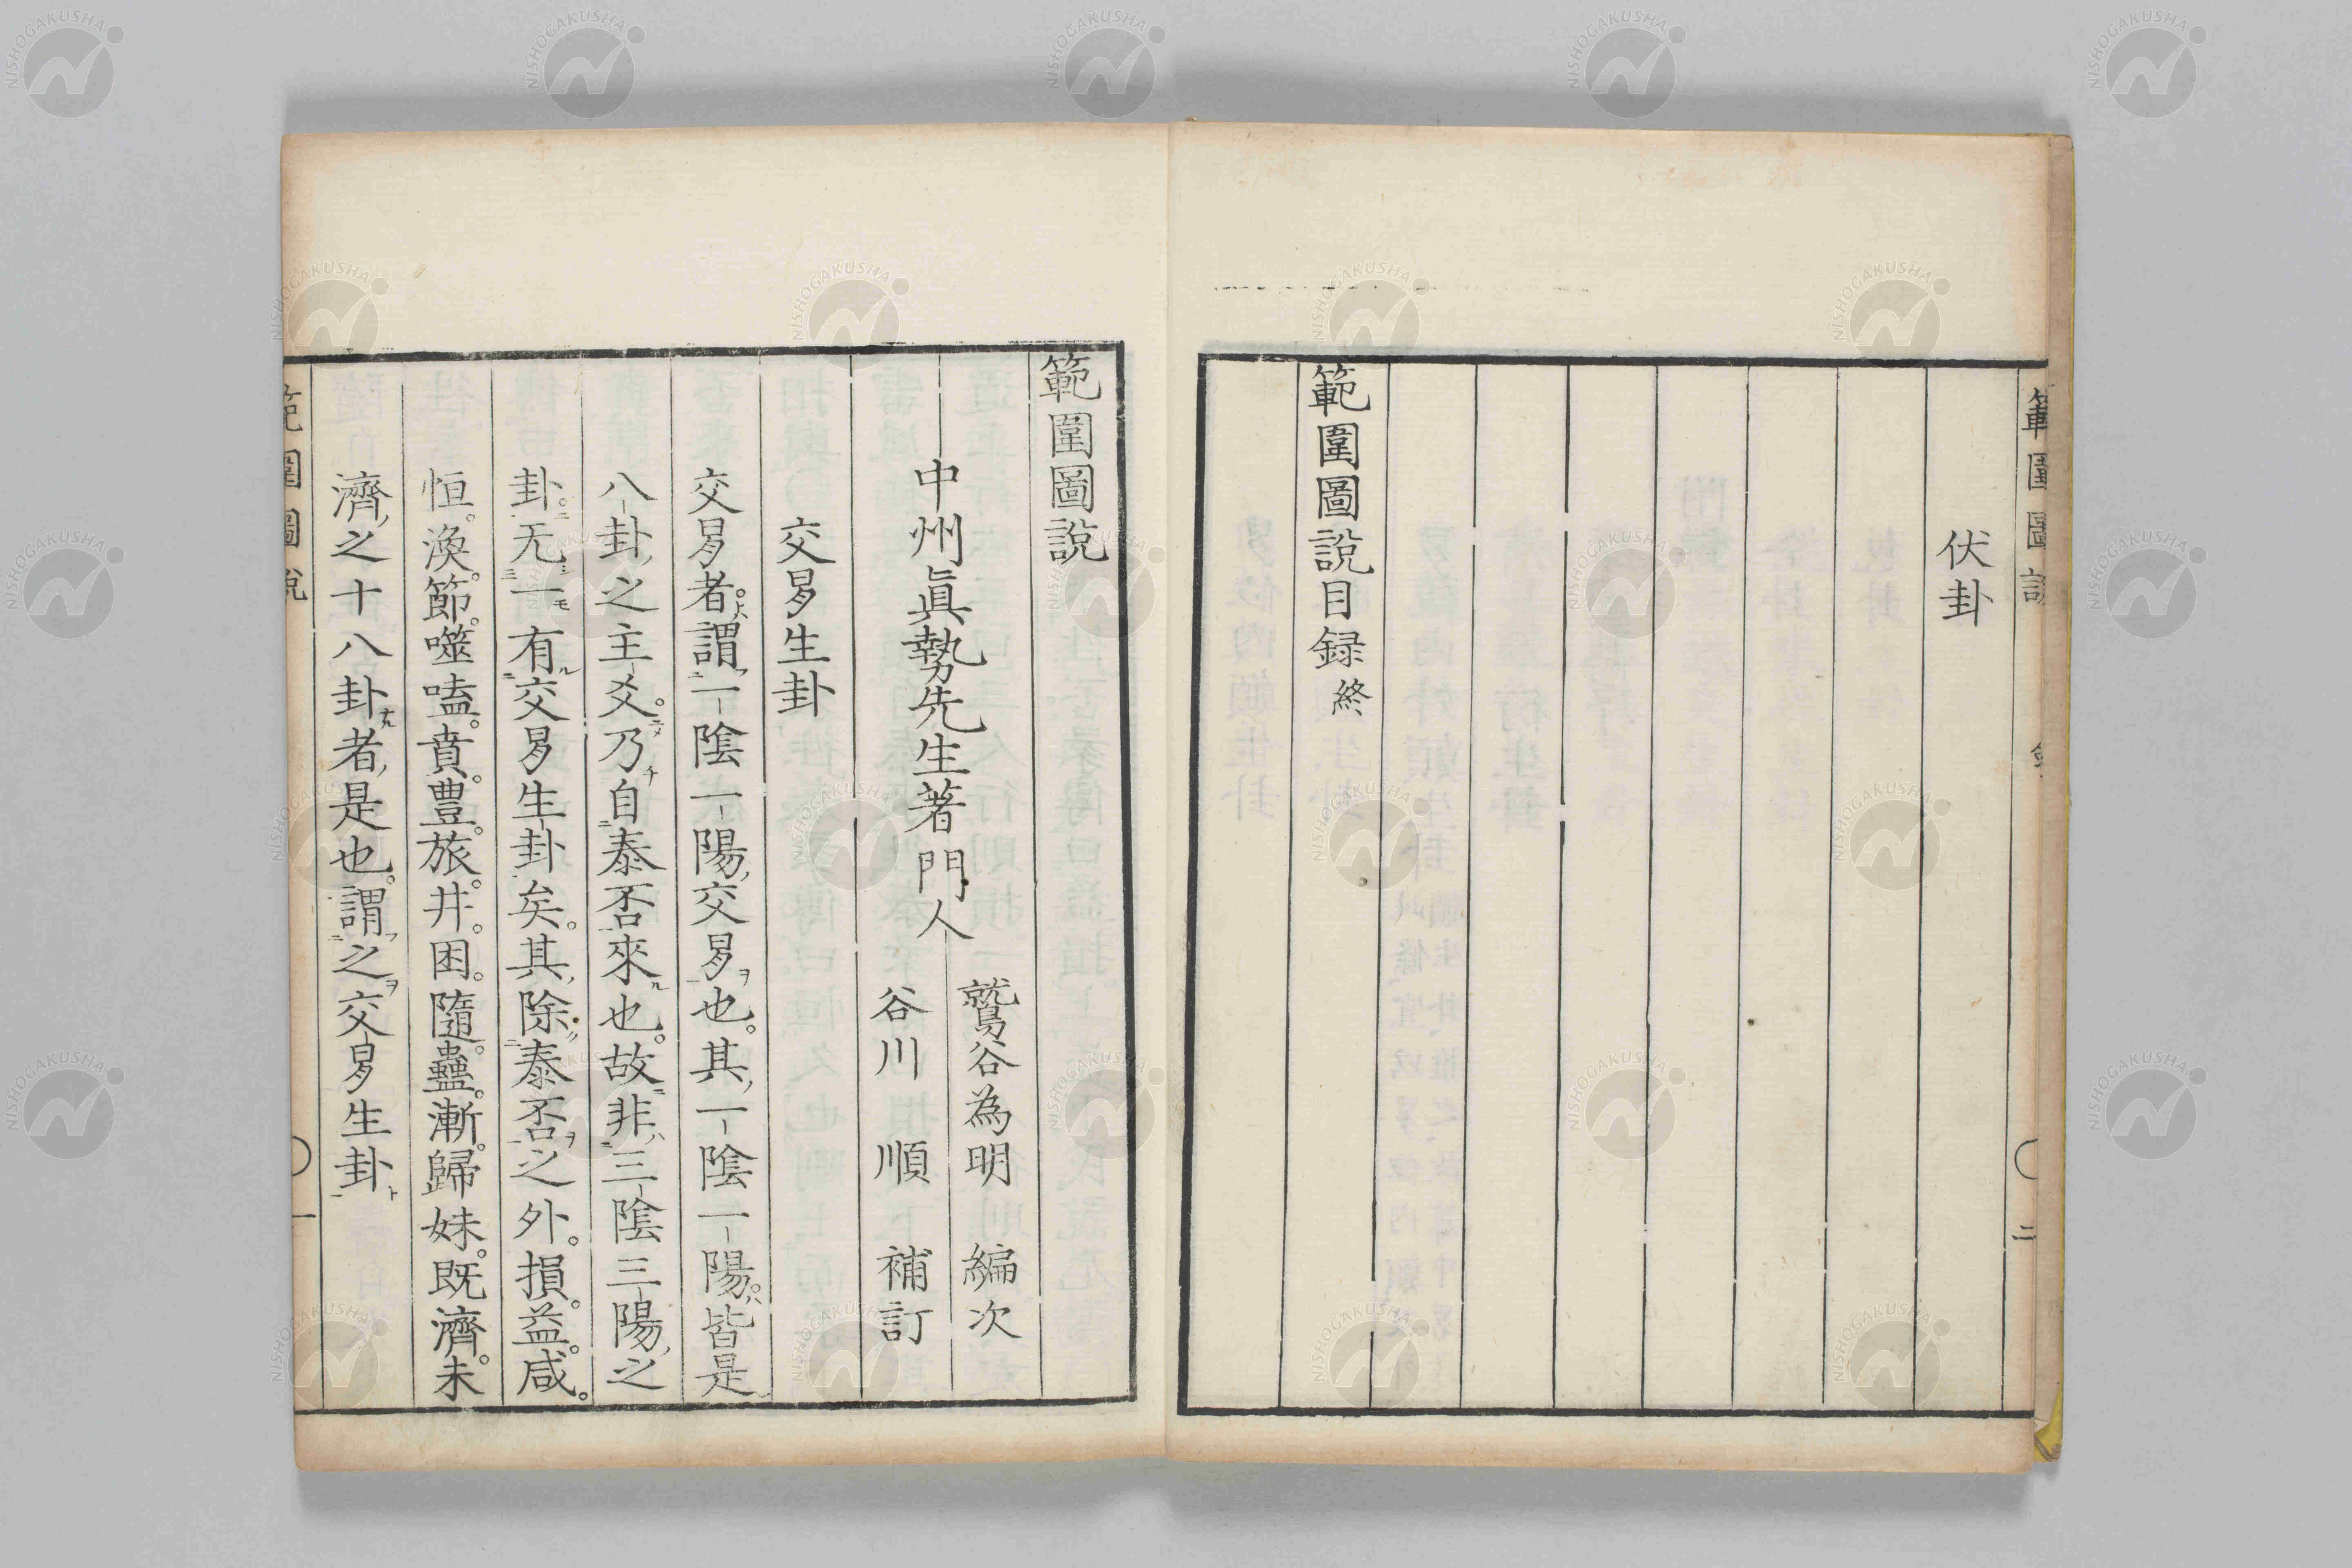 範圍圖說
二
伏卦
範圍圖說目録終
範圍圖說
中州眞勢先生著門人
鷲谷為明 編次
谷川 順 補訂
交易生卦
交易者。謂一陰一陽交易也。其一陰一陽。皆是
八卦之主爻。乃自泰否來也。故非三陰三陽之
卦。无一有交易生卦矣。其除泰否之外。損。益。咸。
恒。渙。節。噬嗑。賁。豊。旅。井。困。隨。蠱。漸。歸妹。既濟。未
濟之十八卦者是也。謂之交易生卦
範圍圖說
一
NISHOGAKUSHA